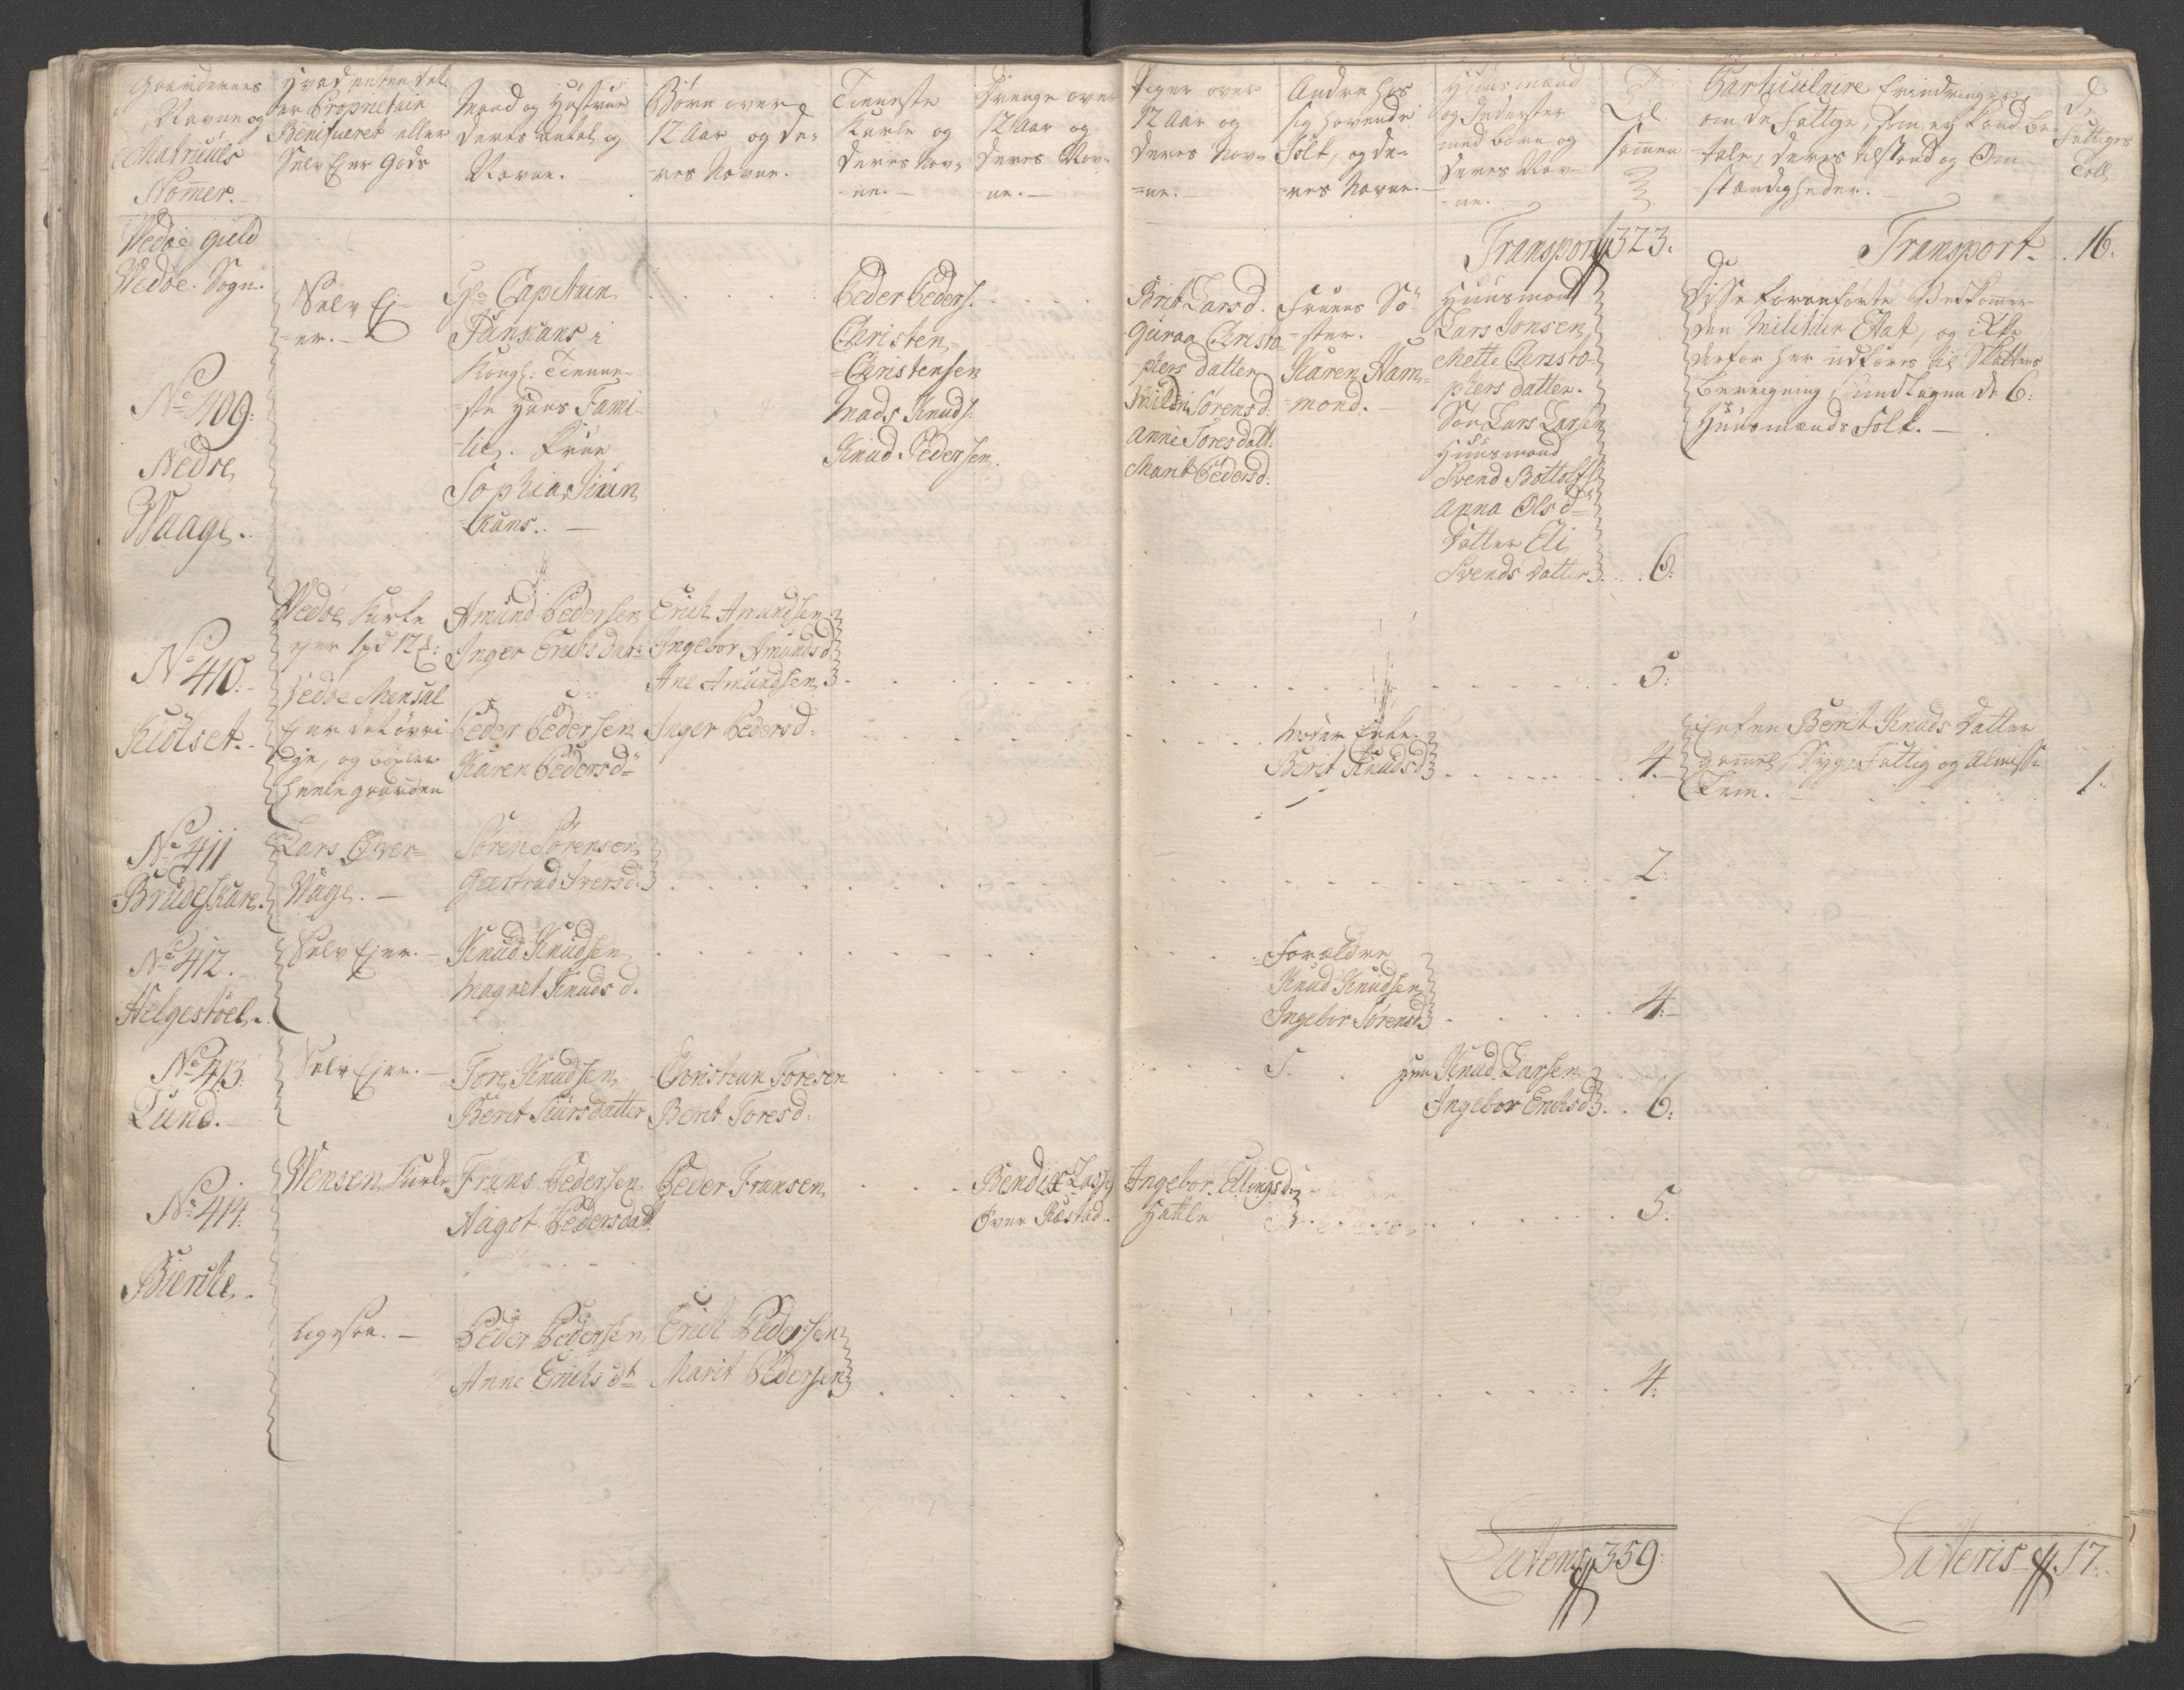 Gaardernes
Navne og
Matriculs
Nommer.
Hvad enten det
er Proprietair
Benificeret eller
Selv Ejer Gods
Mand og Hustrue
deres Antal og
Navne.
Børn over
12 Aar og de=
=res Navne.
Tieneste
Karle og
deres Nav=
=ne.
Drenge over
12 Aar og
deres Nav=
ne.
Piger over
12 Aar og
deres Nav=
=ne.
Andre hos
sig havende
Folk, og de=
=res Navne.
Huusmænd
og Inderster
med børn og
deres Nav=
=ne.
Til
sammen
Particulaire Erindringer
om de Fattige, som ey kand be=
=tale, deres tilstand og Om=
=stændigheder.
De
Fattiges
Tall
Vedøe gield
Vedøe Sogn.
Transport 323.
Transport. 16.
No 409:
Nedre
Waage.
Selv Ej=
=er.
Hr Capitain
Junkans i
Kongl: Tienne=
=ste hans Fami=
=lie. Frue
Sophia Jun
=kans.
Peder Peders.
Christen
=Christensen
Mads Knuds.
Knud Pedersen.
Brit Larsd.
Guraa Christo=
phers datter
Sørensd.
Anne Toresdatt:
Marit Pedersd:
Fruens Sø=
=ster.
Karen Ham=
=mond.
Huusmand
Lars Jonsen
Mette Christo=
phers datter.
Søn Lars Larsen
Huusmand
Svend Bottolfs
Anna Olsd
datter Eli
Svends datter. 6.
Disse foranførte vedkommer
den Militair Etat, og
derfor her udføres til Skattens
beregning, undtagen de 6:
Huusmænds Folk.
No 410.
Kiølset.
Vedøe Kirke
ejer 1 pd 12
Vedøe Mensal
Ejer det øvri
=ge, og bøxler
heele gaarden
Amund Pedersen
Inger Erichsdat:
Erich Amundsen
Ingebor Amundsd
Ane Amundsen 5.
Peder Pedersen
Karen Pedersd
Inger Pedersd.
Moder Enke.
Berit Knudsd 4.
Enken Berit Knuds datter
gammel, Syg, Fattig og Almisse
Lem. 1.
No 411
Brudeskare.
Lars Over=
Waage.
Søren Sørensen
Giertrud Iversd. 2.
No 412.
Helgestøel.
Selv Ejer.
Knud Knudsen
Magret Knuds d.
Forældre
Knud Knudsen
Ingebor Sørensd 4.
No 413.
Lund.
Selv Ejer.
Tore Knudsen
Berit Siursdatter
Christian Toresen
Berit Toresd.
Knud Larsen
Ingebor Erichsd. 6.
No 414.
Bierche.
Wensen Kirke
Frans Pedersen
Aagot Pedersdatt
Peder Fransen
Bendix Lasse
Ingebor Ellingsd
5.
ligesaa.
Peder Pedersen
Anne Erichs dt
Erich Pedersen
Marit Pedersen 4.
Latens 359.
Lateris 17.